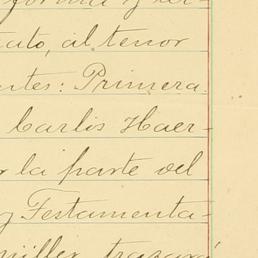 forma y ter-
tato, al tenor
ntes: Primera.
Carlis Haer-
r la parte del
y Testamenta-
miller, trazará